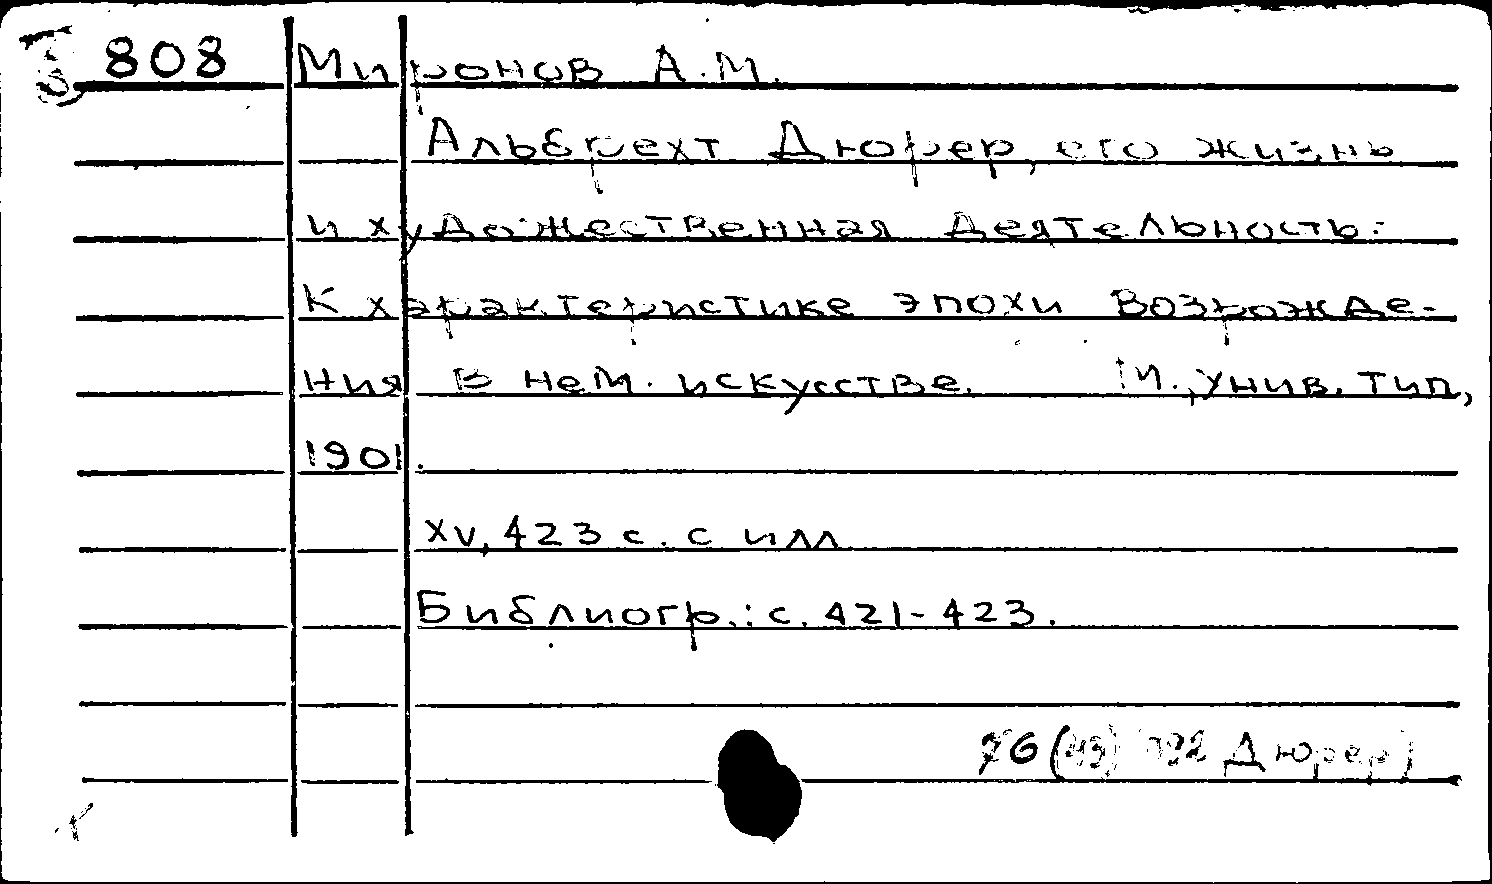 808 Миронов А.М.
Альбрехт Дюрер, его жизнь
и художественная деятельность:
К характеристике эпохи Возрожде-
ния в нем. искусстве. М., Унив. тип,
1901.
XV, 423 с. с илл
Библиогр.: с. 421-423.
76(43) 092 Дюрер)